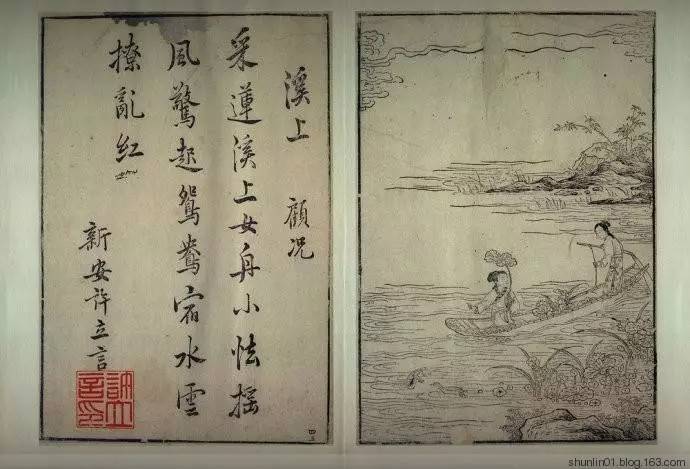 溪上 顧况
采蓮溪上女舟小怯摇
風驚起鴛鴦宿水雲
撩亂紅
新安許立言
shunlin01.blog.163.com